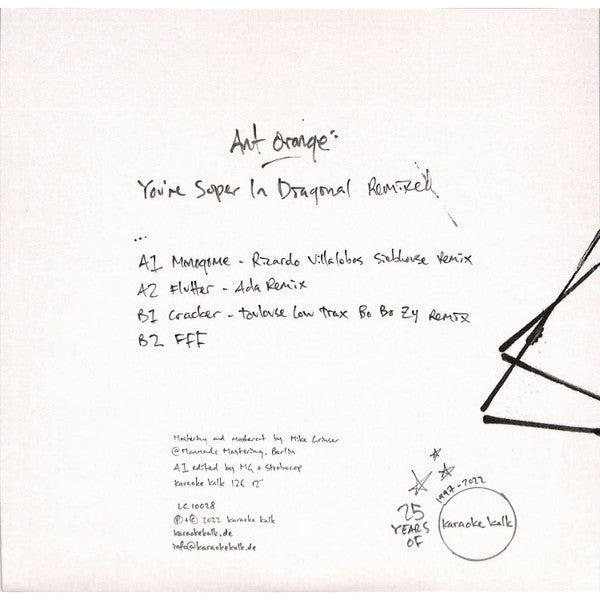 Ant Orange
You're Super In Diagonal Remixed
...
A1 Monogome - Ricardo Villalobos Siebhouse Remix
A2 Flutter - Ada Remix
B1 Cracker - Toulouse Low Trax Bo Bo Zy Remix
B2 FFF
Mastering and mastercut by Mike Grinser
@Manmade Mastering, Berlin
A1 edited by MG + Strobocop
karaoke kalk 126 12"
LC 10028
℗+© 2022 karaoke kalk
karaokekalk.de
info@karaokekalk.de
1997-2022
25 YEARS OF
karaoke kalk